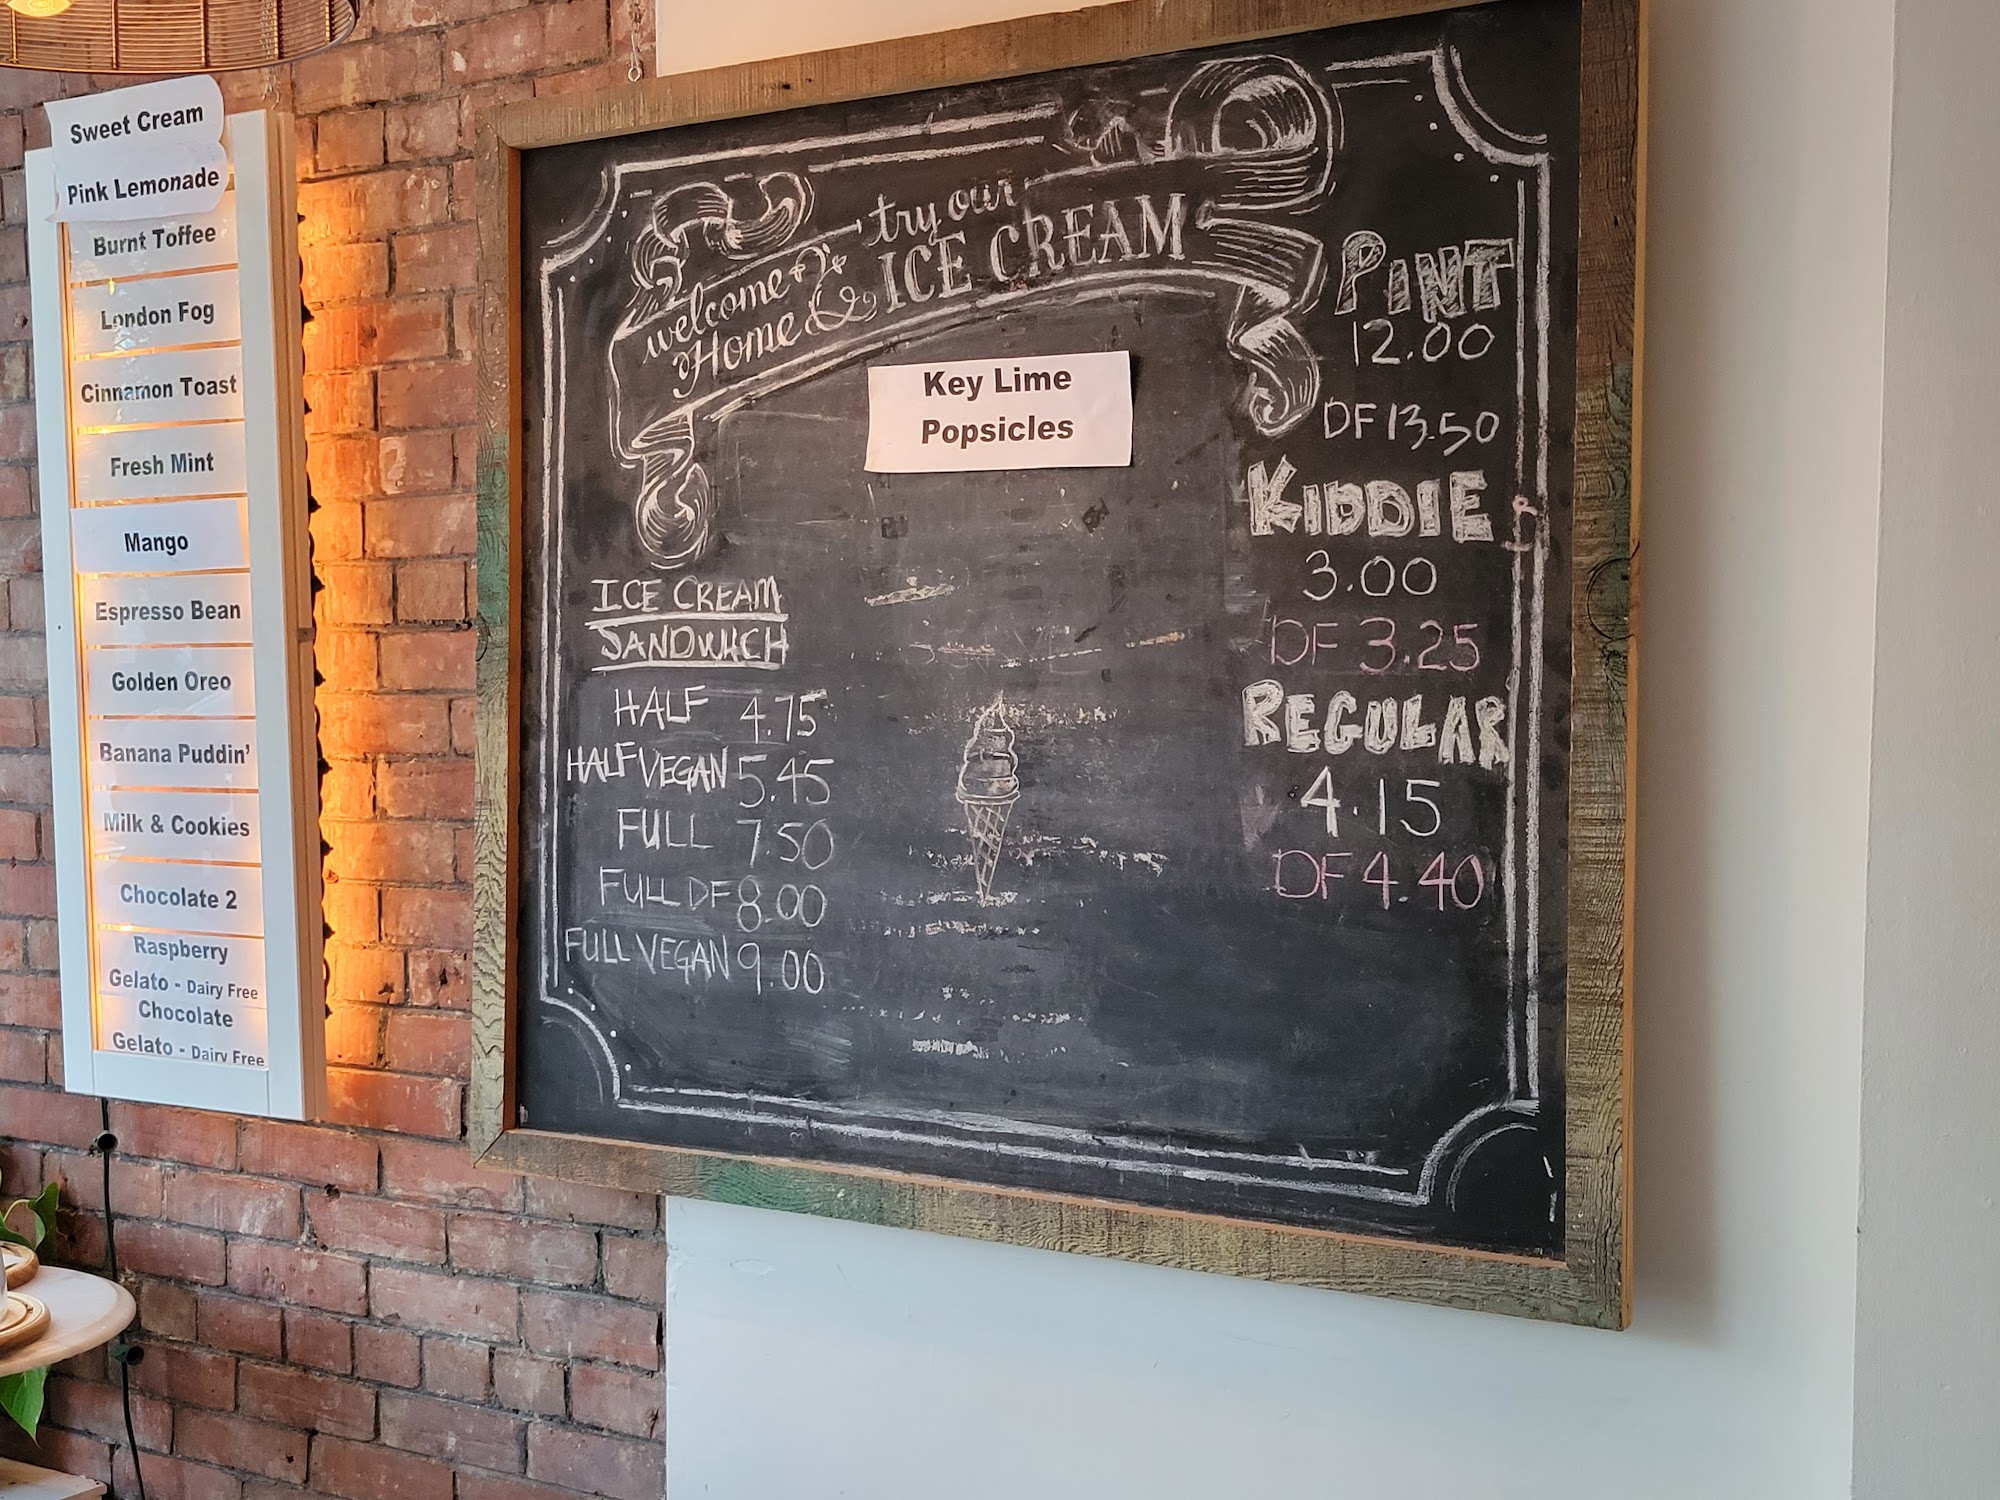 Sweet Cream
Pink Lemonade
Burnt Toffee
London Fog
Cinnamon Toast
Fresh Mint
Mango
Espresso Bean
Golden Oreo
Banana Puddin'
Milk & Cookies
Chocolate 2
Raspberry
Gelato - Dairy Free
Chocolate
Gelato - Dairy Free
welcome
Home & try our
ICE CREAM
Key Lime
Popsicles
ICE CREAM
SANDWICH
HALF 4.75
HALF VEGAN 5.45
FULL 7.50
FULL DF 8.00
FULL VEGAN 9.00
PINT
12.00
DF 13.50
KIDDIE
3.00
DF 3.25
REGULAR
4.15
DF 4.40